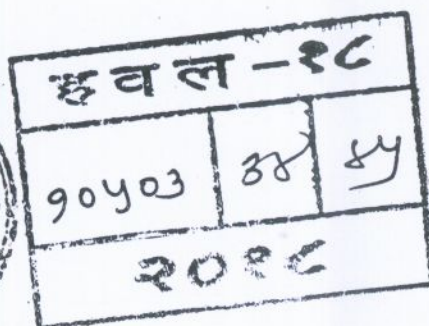 हवल - १८
१०५०३ ३४ ४५
२०१८